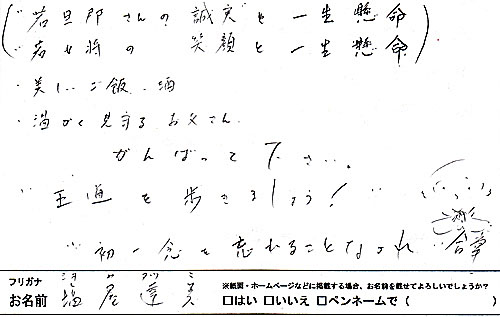 "若旦那さんの誠実"と一生懸命
"若女将の笑顔と一生懸命
・美しいご飯、酒
・温かく見守るお父さん
がんばって下さい。
"王道を歩きましょう!"
"初一念を忘れることなかれ"合掌
フリガナ
お名前
※紙面・ホームページなどに掲載する場合、お名前を載せてよろしいでしょうか?
□はい □いいえ □ペンネームで( )